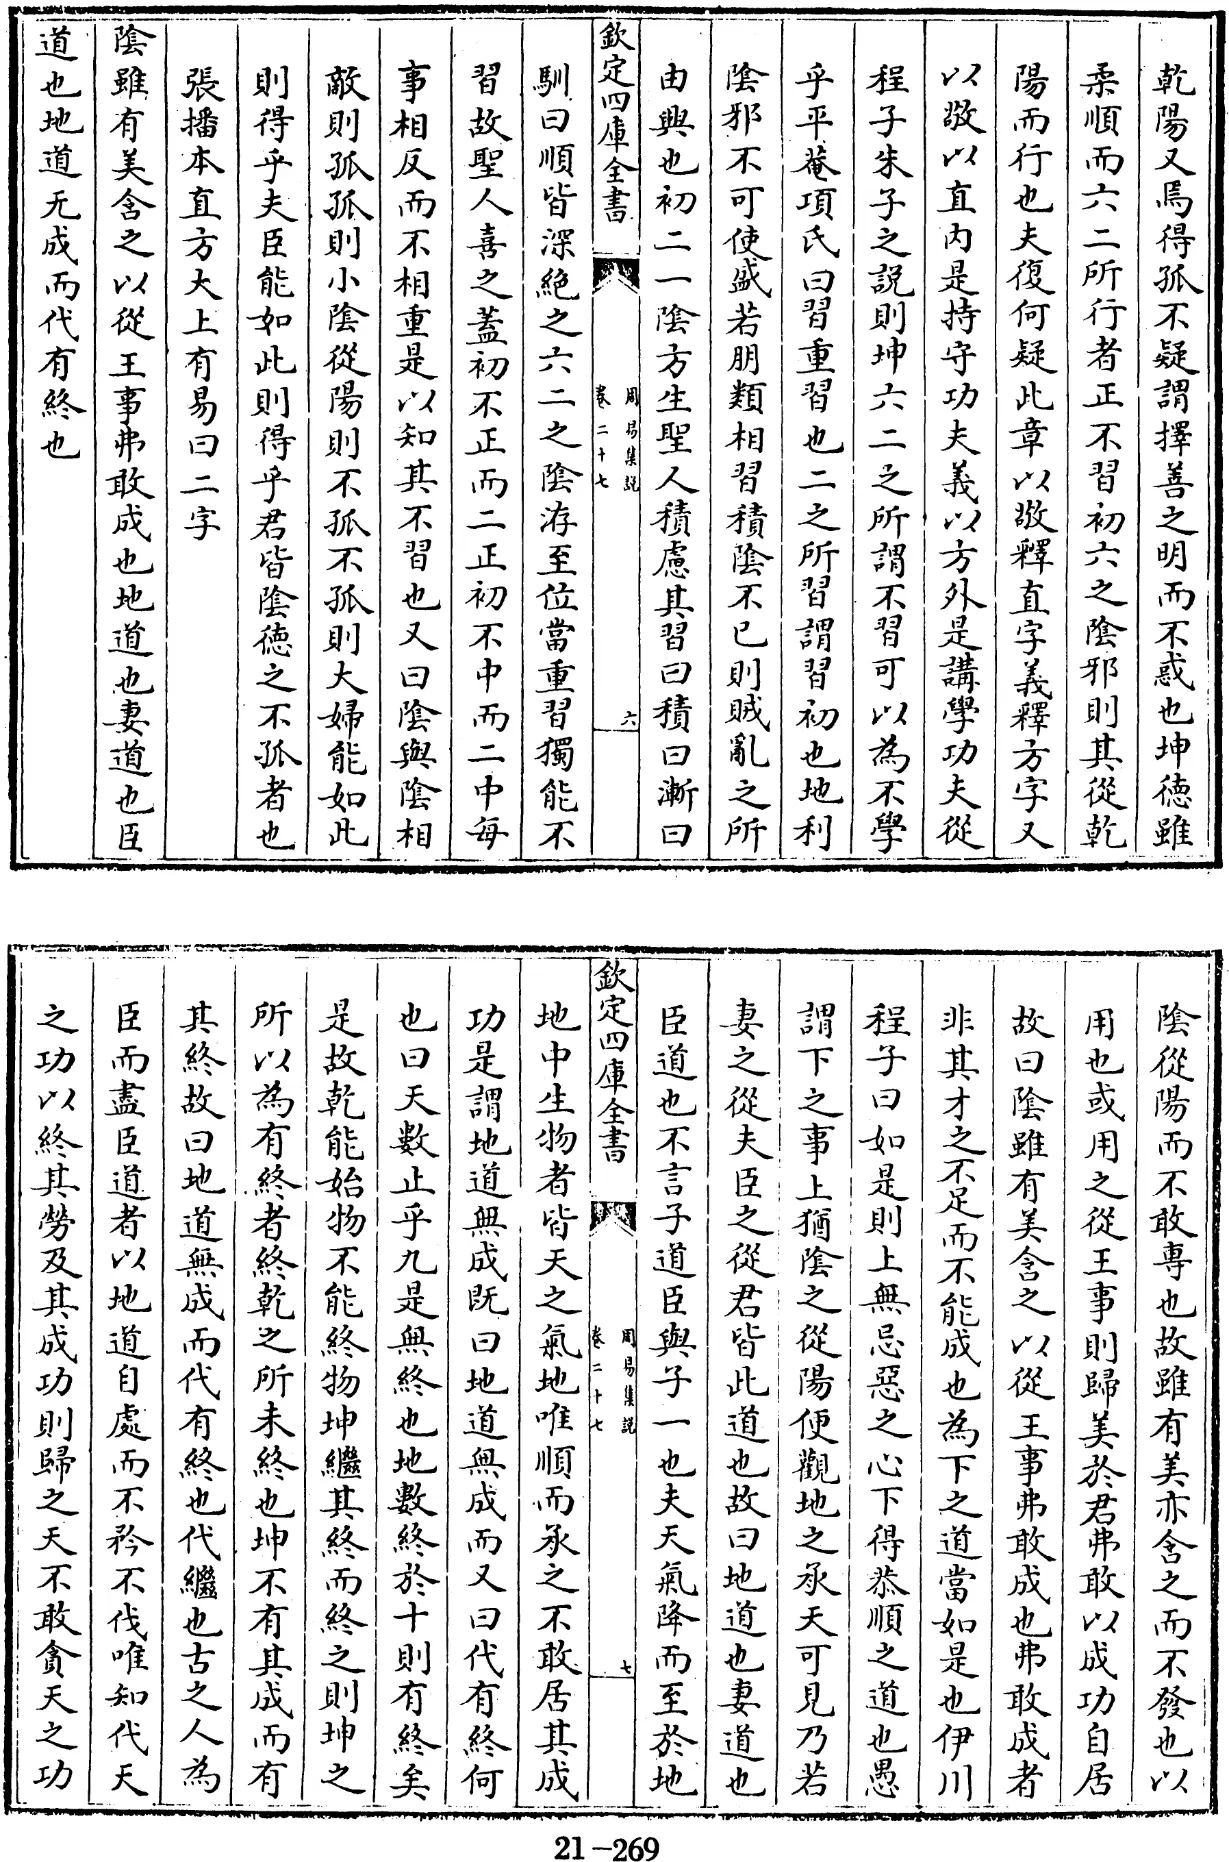 乾陽又焉得孤不疑謂擇善之明而不惑也坤德雖
柔順而六二所行者正不習初六之陰邪則其從乾
陽而行也夫復何疑此章以敬釋直字義釋方字又
以敬以直内是持守功夫義以方外是講學功夫從
程子朱子之説則坤六二之所謂不習可以為不學
乎平菴項氏曰習重習也二之所習謂習初也地利
陰邪不可使盛若朋類相習積陰不已則賊亂之所
由興也初二一陰方生聖人積慮其習曰積曰漸曰
欽定四庫全書
周易集説
卷二十七
六
馴曰順皆深絶之六二之陰洊至位當重習獨能不
習故聖人喜之蓋初不正而二正初不中而二中每
事相反而不相重是以知其不習也又曰陰與陰相
敵則孤孤則小陰從陽則不孤不孤則大婦能如此
則得乎夫臣能如此則得乎君皆陰德之不孤者也
張播本直方大上有易曰二字
陰雖有美含之以從王事弗敢成也地道也妻道也臣
道也地道无成而代有終也
陰從陽而不敢專也故雖有美亦含之而不發也以
用也或用之從王事則歸美於君弗敢以成功自居
故曰陰雖有美含之以從王事弗敢成也弗敢成者
非其才之不足而不能成也為下之道當如是也伊川
程子曰如是則上無忌惡之心下得恭順之道也愚
謂下之事上猶陰之從陽便觀地之承天可見乃若
妻之從夫臣之從君皆此道也故曰地道也妻道也
臣道也不言子道臣與子一也夫天氣降而至於地
欽定四庫全書
周易集説
卷二十七
七
地中生物者皆天之氣地唯順而承之不敢居其成
功是謂地道無成既曰地道無成而又曰代有終何
也曰天數止乎九是無終也地數終於十則有終矣
是故乾能始物不能終物坤繼其終而終之則坤之
所以為有終者終乾之所未終也坤不有其成而有
其終故曰地道無成而代有終也代繼也古之人為
臣而盡臣道者以地道自處而不矜不伐唯知代天
之功以終其勞及其成功則歸之天不敢貪天之功
21-269